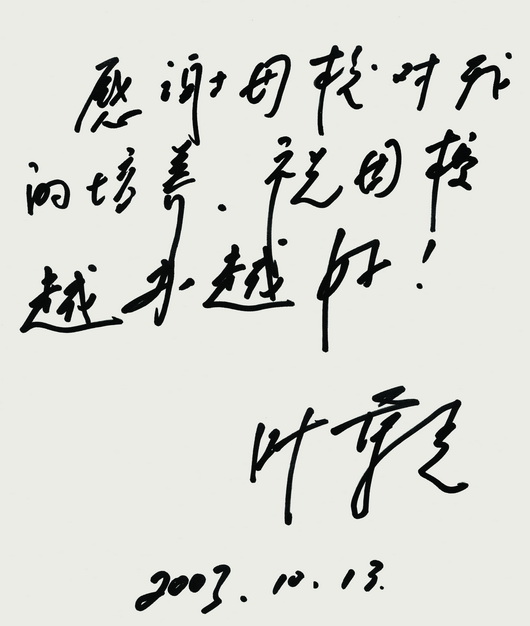 感谢母校对我
的培养.祝母校
越办越好!
叶
2003.10.13.